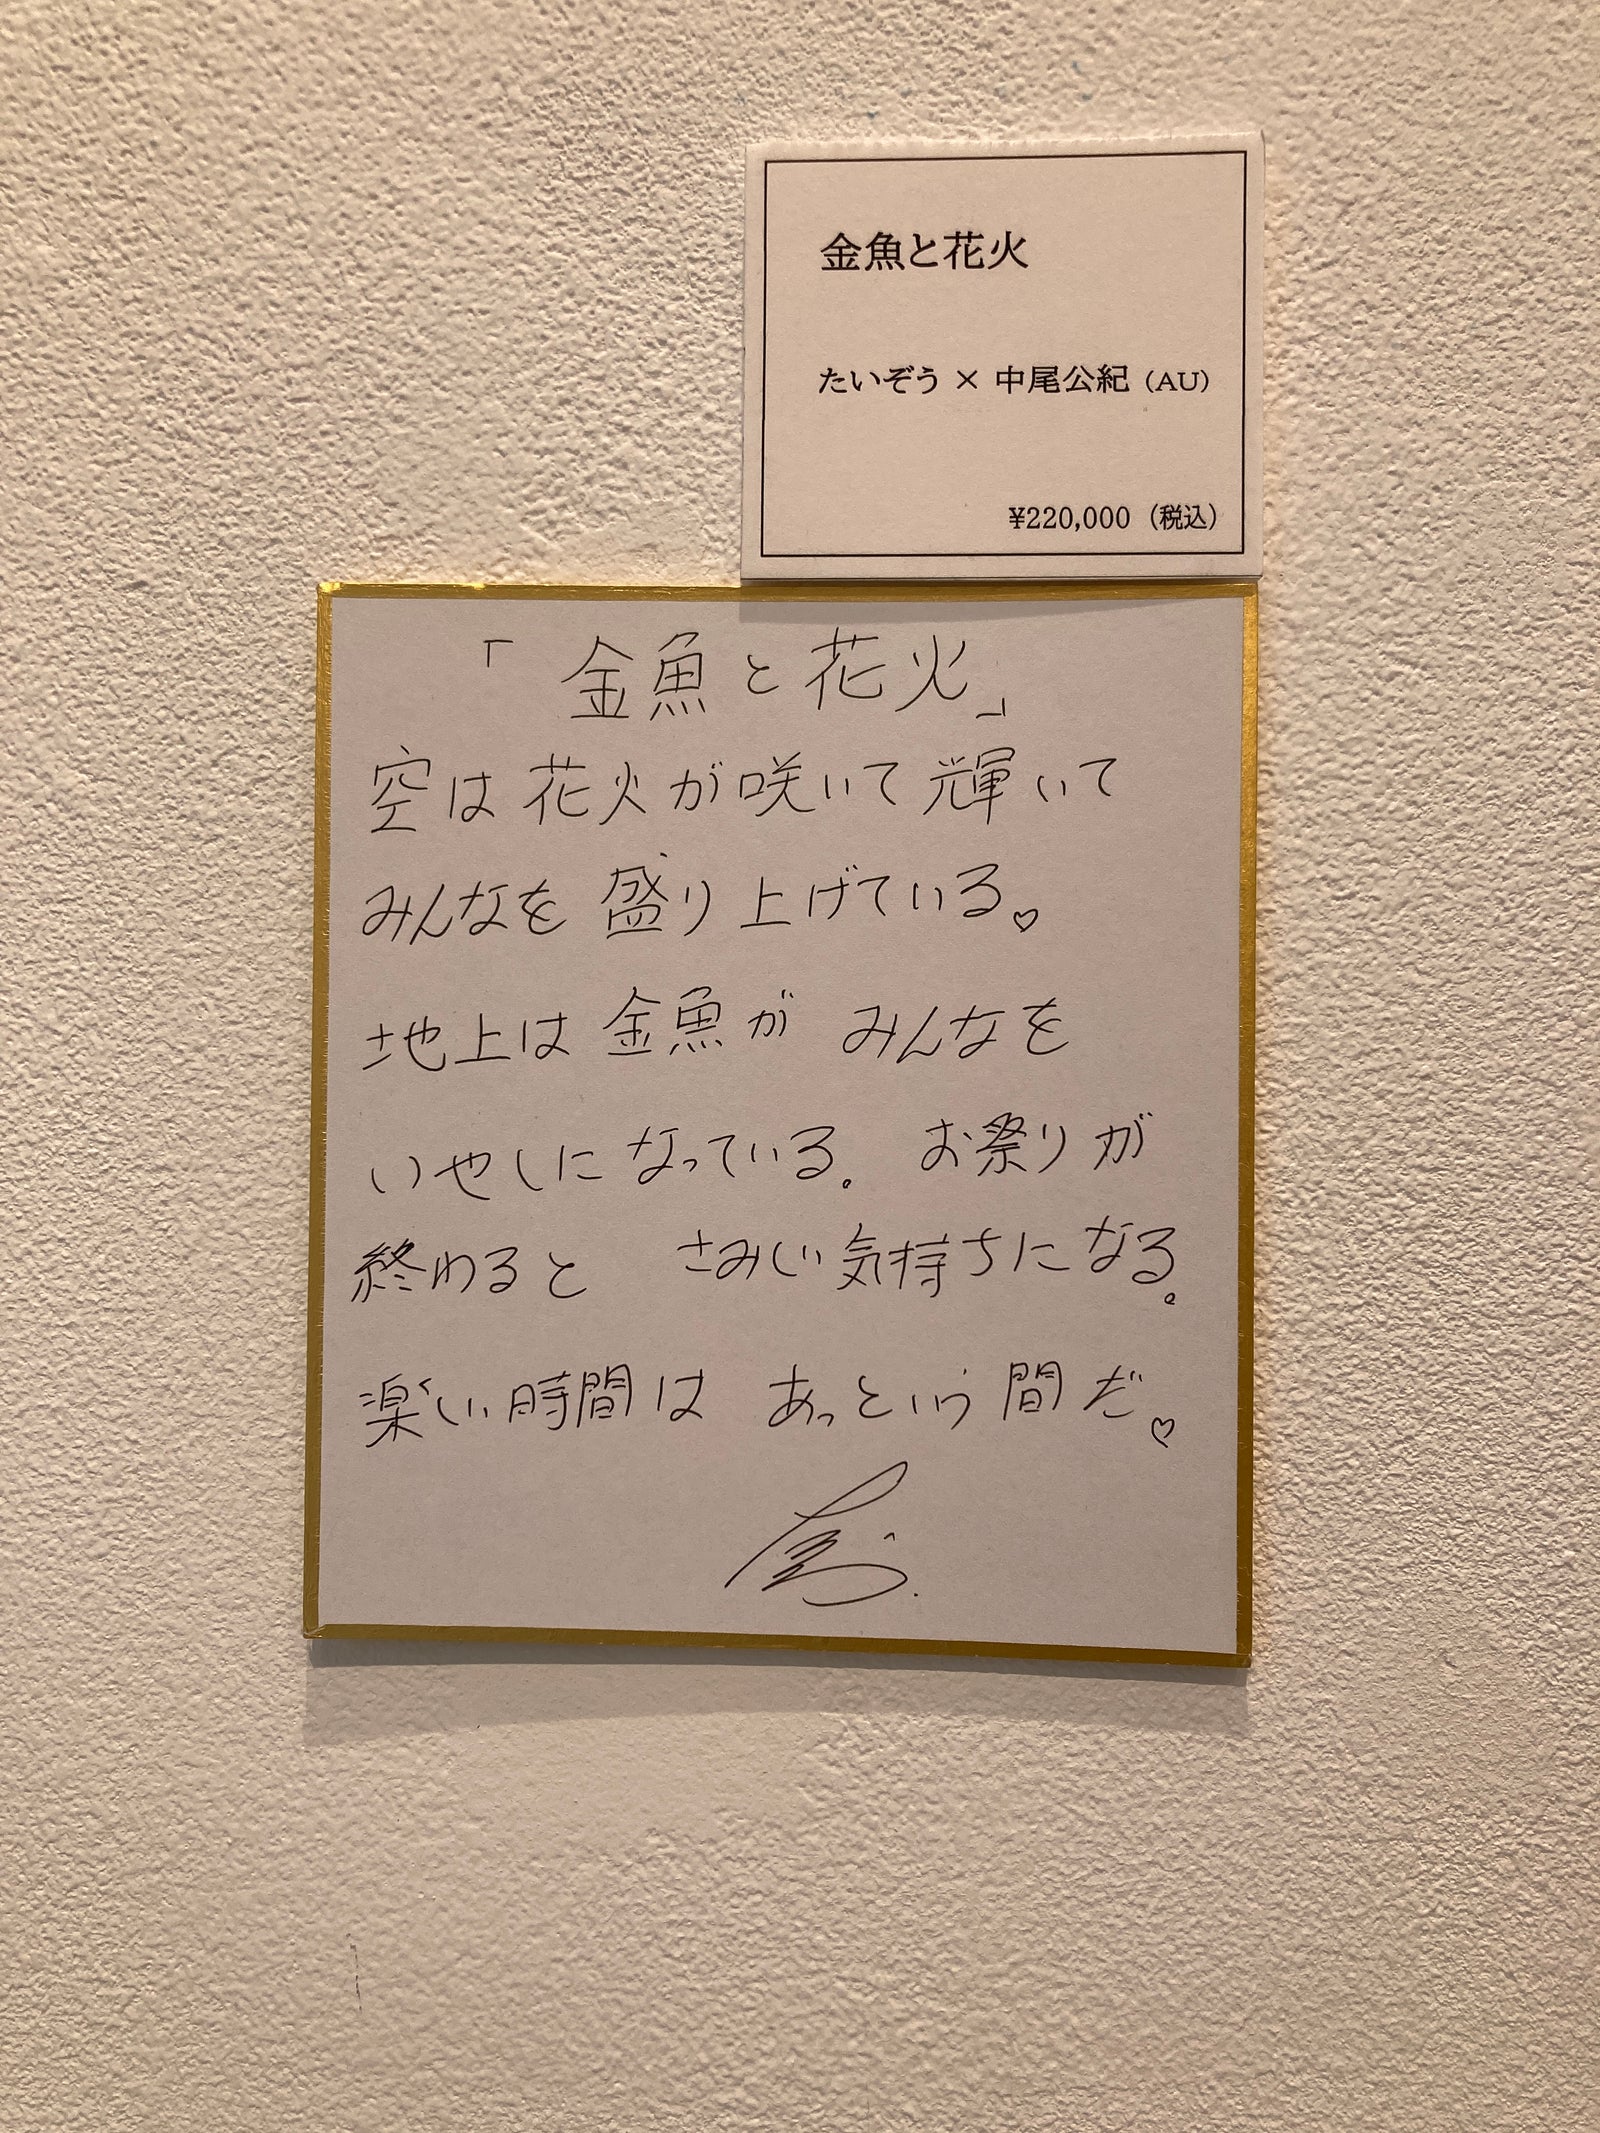 金魚と花火
たいぞう × 中尾公紀（AU）
¥220,000（税込）
「金魚と花火」
空は花火が咲いて輝いて
みんなを盛り上げている。
地上は金魚がみんなを
いやしになっている。お祭りが
終わると さみしい気持ちになる。
楽しい時間は あっという間だ。